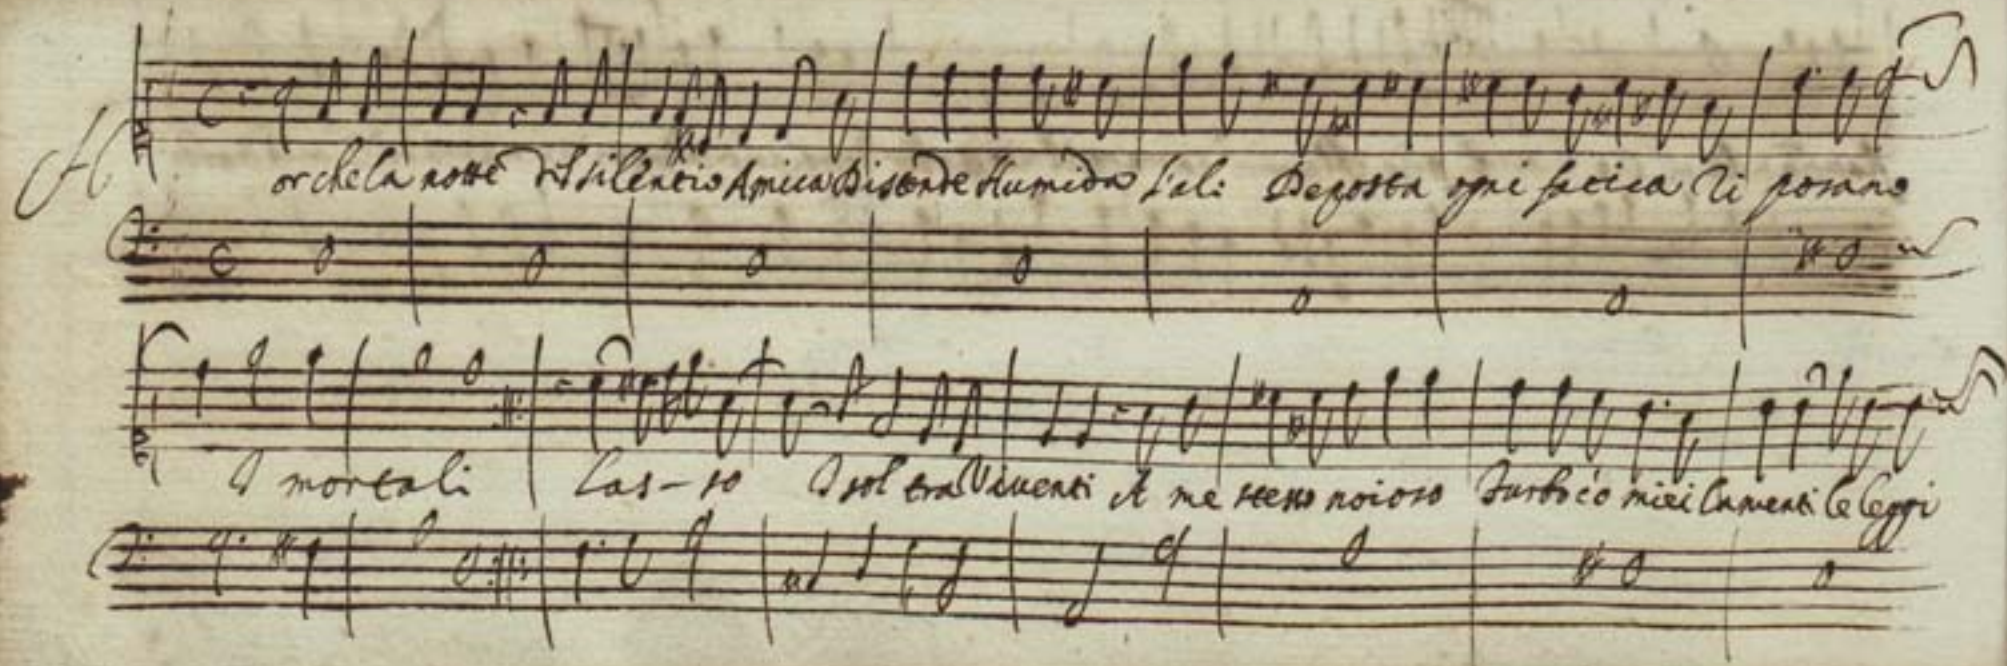 Hor che la notte del silentio Amica Distende Humida l'ali Deposta ogni fatica Ri posano
I mortali Las-so Io sol tra Viventi A me stesso noioso Turbo co miei lamenti le leggi